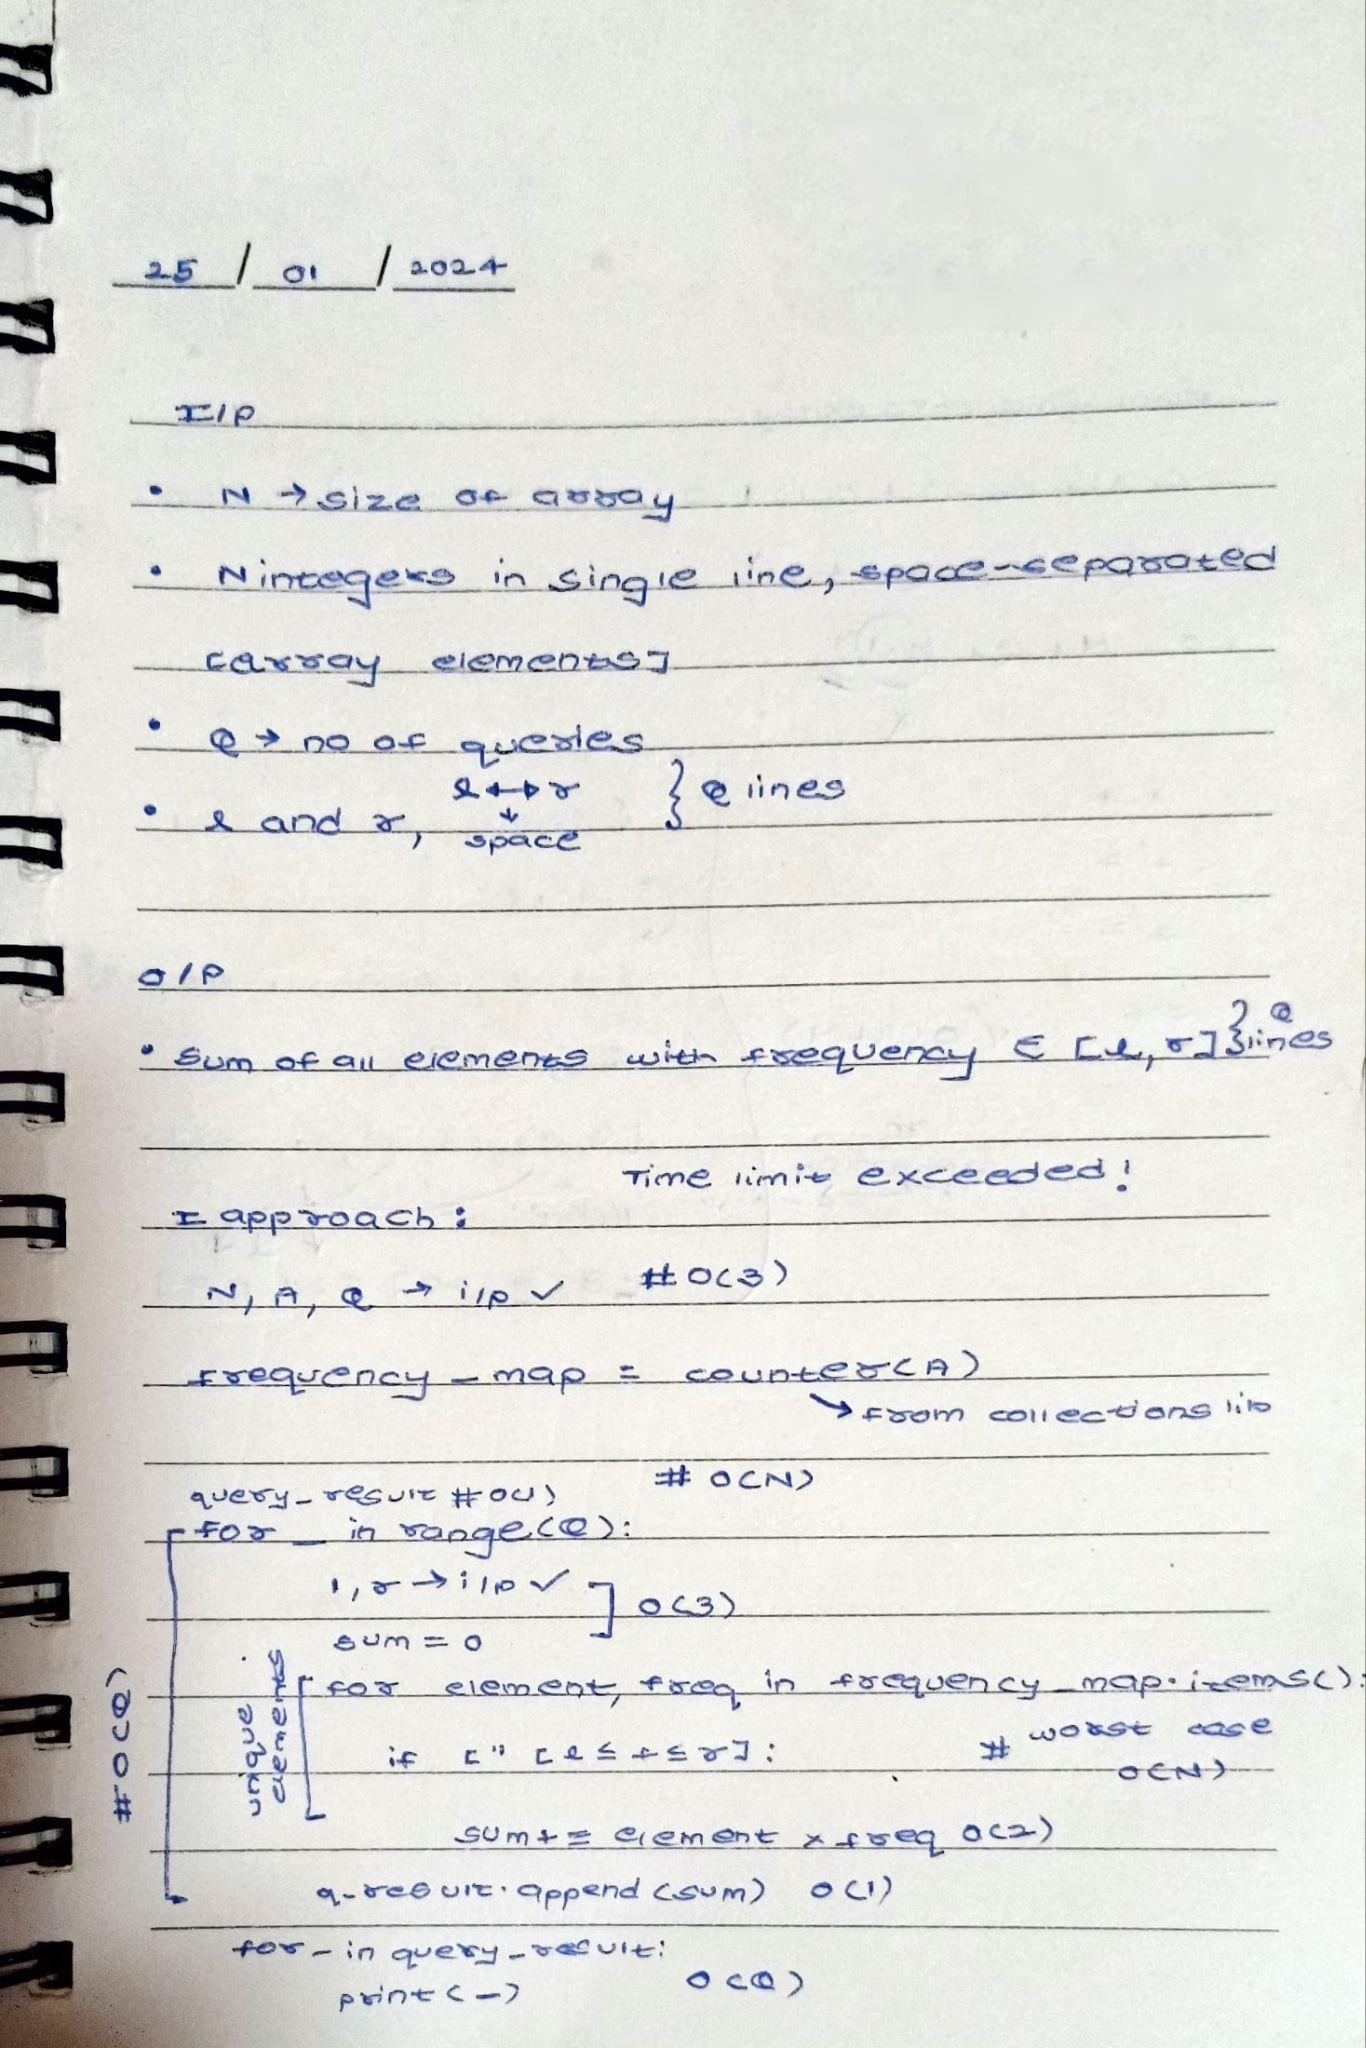 25 / 01 / 2024
I/P
• N → size of array
• N integers in single line, space-separated
[array elements]
• Q → no of queries
• l and r, l ↔ r } Q lines
↓
space
O/P
• Sum of all elements with frequency ∈ [l, r] } Q lines
Time limit exceeded!
I approach:
N, A, Q → i/p ✓ # O(3)
frequency_map = counter(A)
↘ from collections lib
# O(N)
query_result # O(1)
for _ in range(Q):
l, r → i/p ✓ ] O(3)
sum = 0
# O(Q)
unique elements
for element, freq in frequency_map.items():
if [" [l ≤ f ≤ r]: # worst case
O(N)
sum += element x freq O(2)
q_result.append(sum) O(1)
for _ in query_result:
print(_) O(Q)